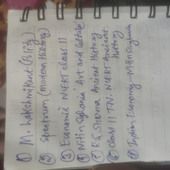 ① M. Lakshmikant (Polity)
② Spectrum (modern History)
③ Economic NCERT class 11
④ Nitin Singhania Art and Culture
⑤ R.S Sharma Ancient History
⑥ Class 11 T.N. NCERT Ancient
History
⑦ Indian Economy -